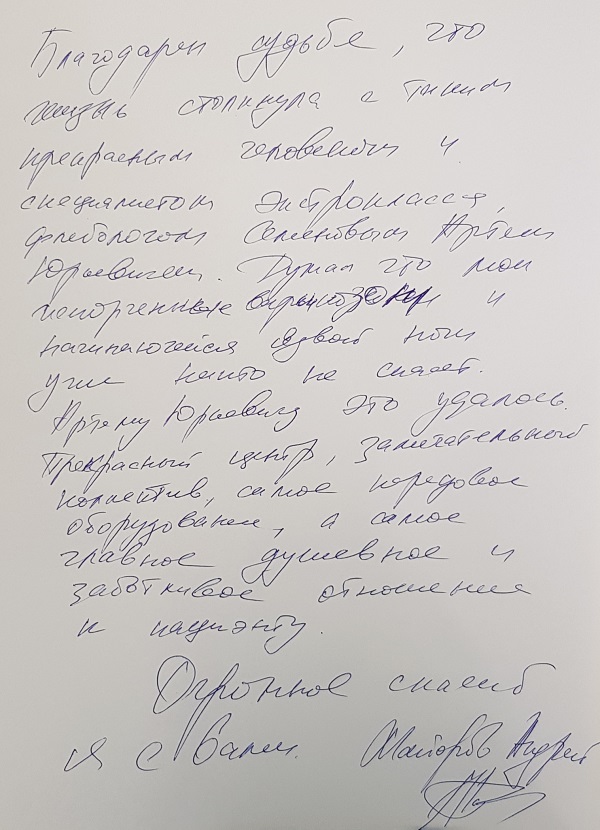 Благодарен судьбе, что
жизнь столкнула с таким
прекрасным человеком и
специалистом экстрокласса,
флебологом Семеновым Артем
Юрьевичем. Думал что мои
испорченные варикозом и
начинающейся язвой ноги
уже никто не спасет.
Артему Юрьевичу это удалось.
Прекрасный центр, замечательный
коллектив, самое передовое
оборудование, а самое
главное душевное и
заботливое отношение
к пациэнту.
Огромное спасиб
Я с Вами. Майоров Андрей